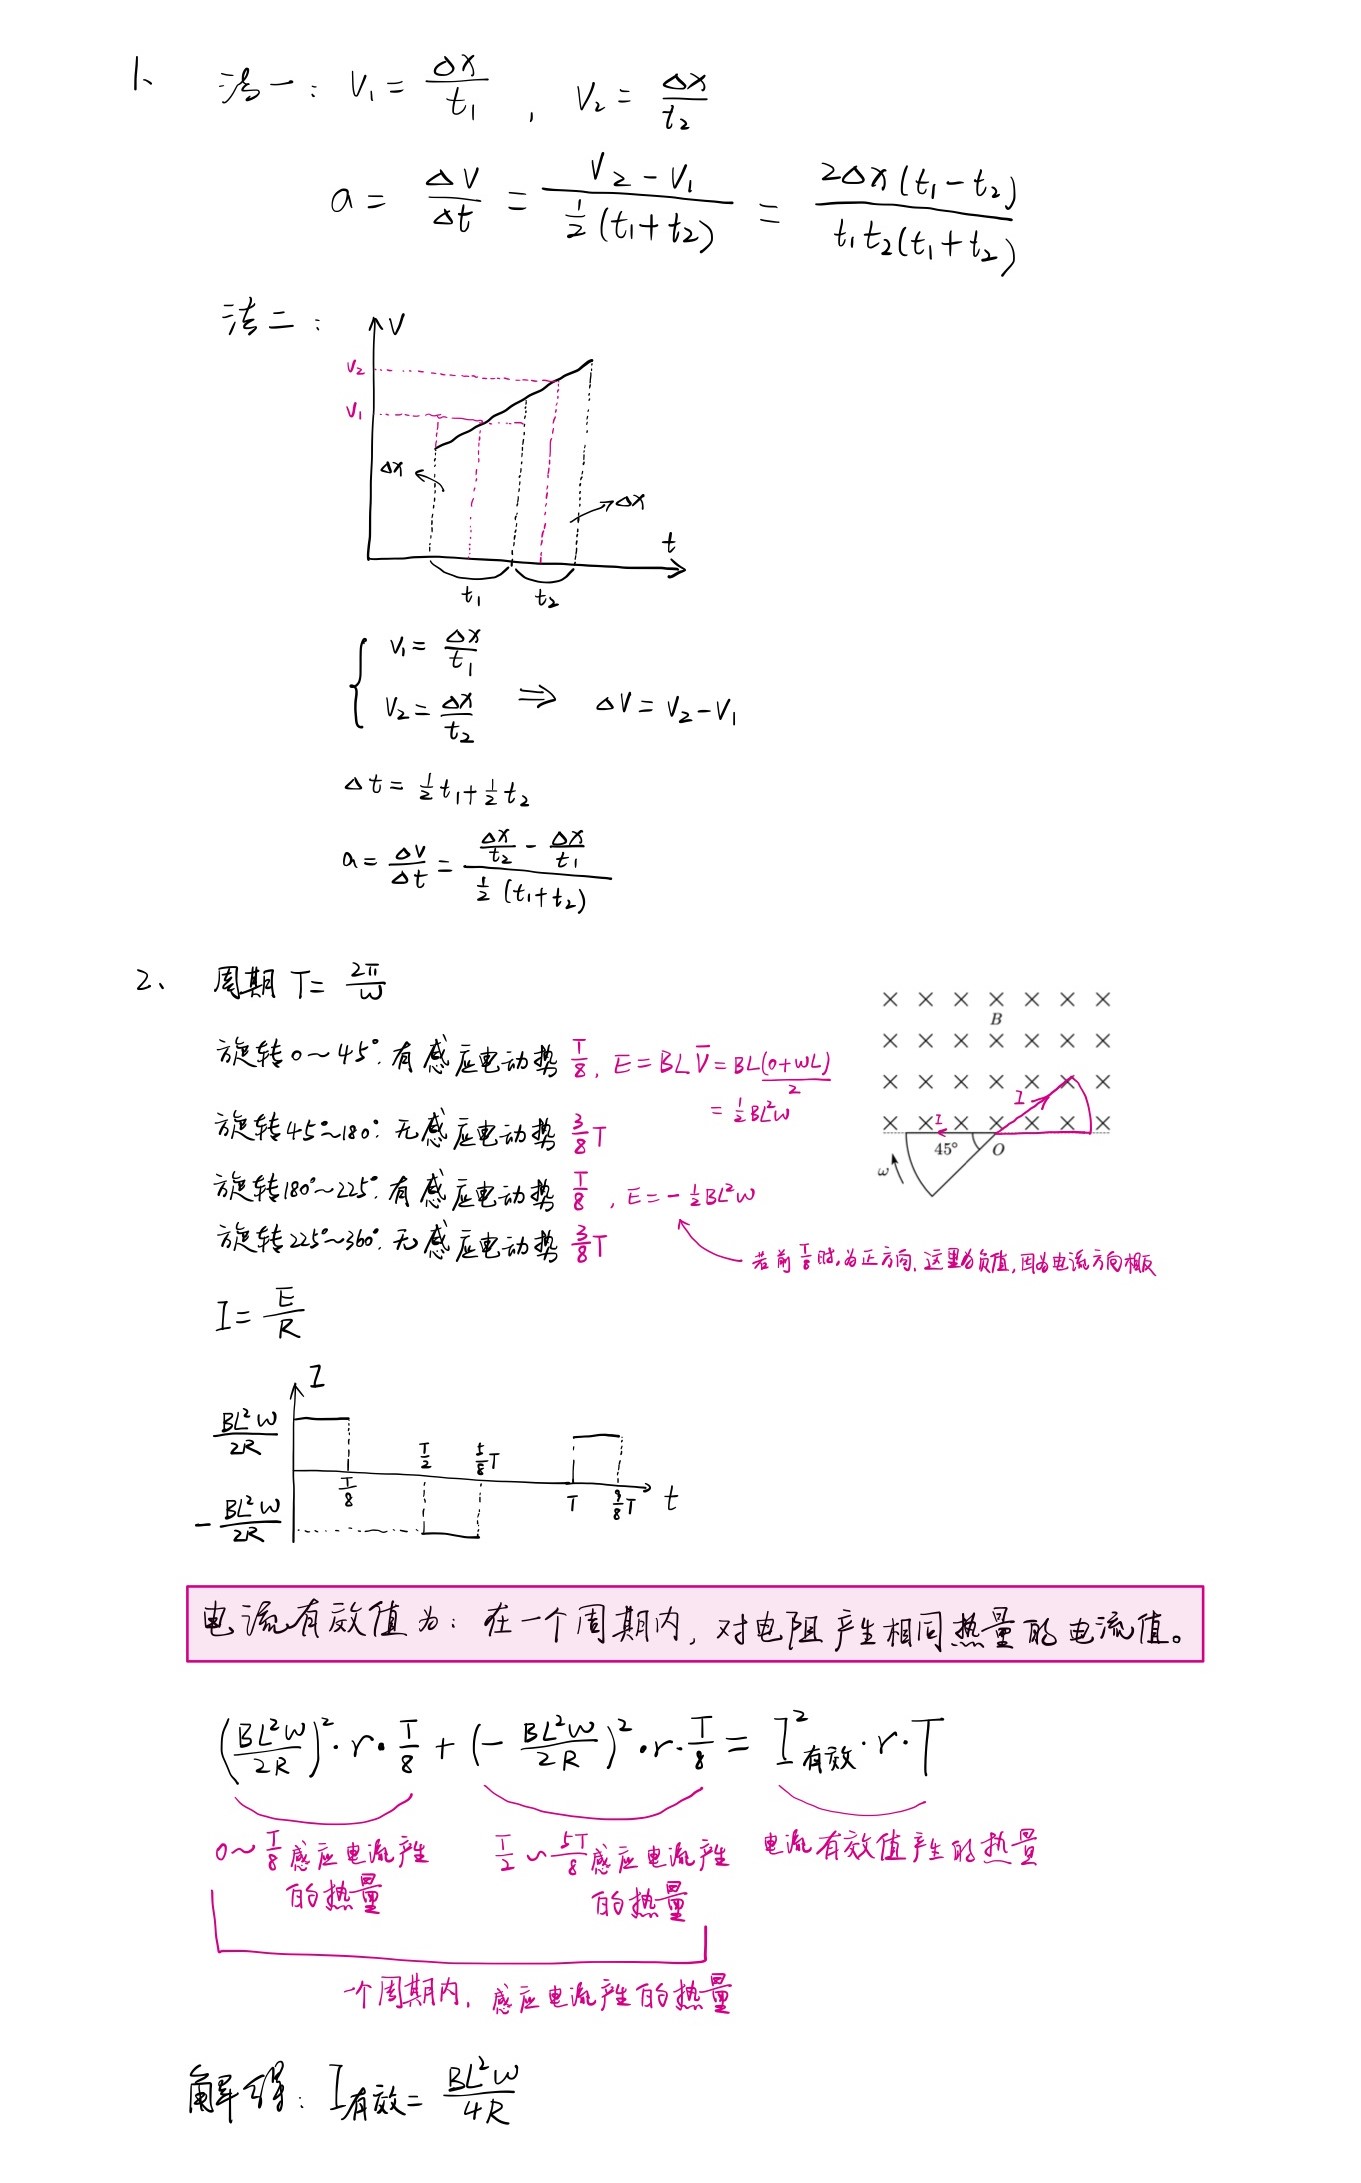 1、 法一：V₁ = Δx/t₁ , V₂ = Δx/t₂
a = ΔV/Δt = (V₂ - V₁)/(½(t₁+t₂)) = 2Δx(t₁-t₂)/(t₁t₂(t₁+t₂))
法二：
V
V₂
V₁
Δx
Δx
t
t₁ t₂
{ V₁ = Δx/t₁
V₂ = Δx/t₂ ⇒ ΔV = V₂ - V₁
Δt = ½t₁ + ½t₂
a = ΔV/Δt = (Δx/t₂ - Δx/t₁)/(½(t₁+t₂))
2、 周期 T = 2π/ω
旋转0~45°.有感应电动势 T/8, E = BLV̄ = BL(0+ωL)/2
= ½BL²ω
旋转45°~180°. 无感应电动势 3/8T
旋转180°~225°.有感应电动势 T/8 , E = -½BL²ω
旋转225°~360°.无感应电动势 3/8T
若前T/8时,为正方向,这里为负值,因为电流方向相反
B
I
I
45° O
ω
I = E/R
I
BL²ω/2R
T/2 5/8T
T/8 T 9/8T t
-BL²ω/2R
电流有效值为：在一个周期内，对电阻产生相同热量的电流值。
(BL²ω/2R)²·r·T/8 + (-BL²ω/2R)²·r·T/8 = I²有效·r·T
0~T/8感应电流产生的热量
T/2~5T/8感应电流产生的热量
电流有效值产生的热量
一个周期内，感应电流产生的热量
解得：I有效 = BL²ω/4R